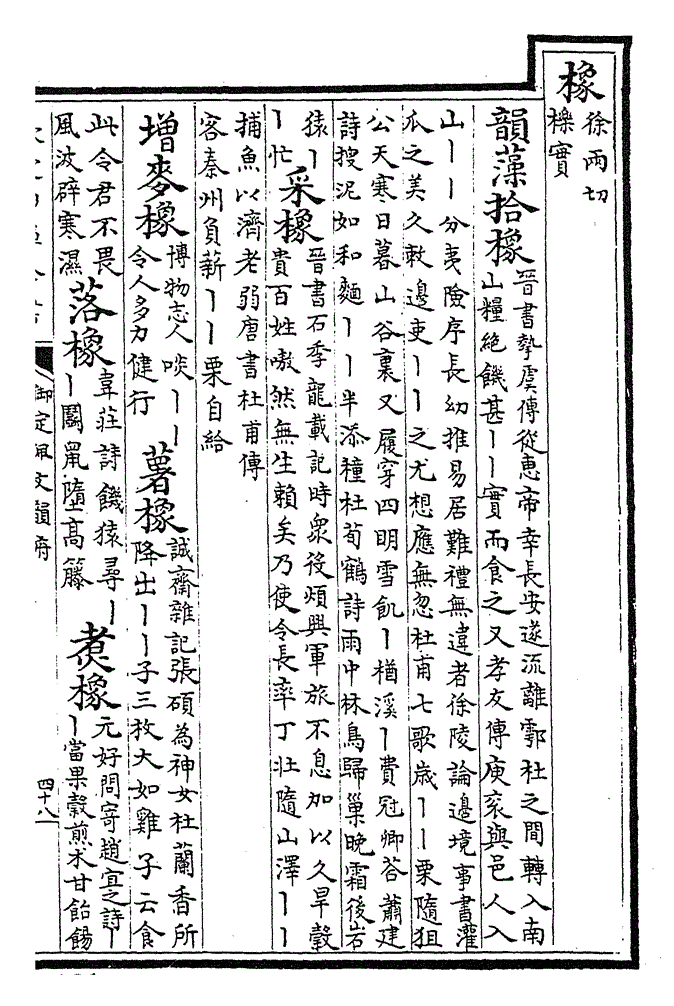 橡 徐兩切
櫟實
韻藻拾橡 晉書摯虞傳從惠帝幸長安遂流離鄠杜之間轉入南
山糧絕饑甚丨丨實而食之又孝友傳庾袞與邑人入
山丨丨分夷險序長幼推易居難禮無違者徐陵論邊境事書灌
瓜之美久敕邊吏丨丨之尤想應無忽杜甫七歌歲丨丨栗隨狙
公天寒日暮山谷裏又履穿四明雪飢丨楢溪丨費冠卿荅蕭建
詩搜泥如和麵丨丨半添糧杜荀鶴詩雨中林鳥歸巢晚霜後岩
猿丨
丨忙
采橡 晉書石季龍載記時衆役煩興軍旅不息加以久旱穀
貴百姓嗷然無生賴矣乃使令長率丁壯隨山澤丨丨
捕魚以濟老弱唐書杜甫傳
客秦州負薪丨丨栗自給
增麥橡 博物志人啖丨丨
令人多力健行
薯橡 誠齋雜記張碩為神女杜蘭香所
降出丨丨子三枚大如雞子云食
此令君不畏
風波辟寒濕
落橡 韋莊詩饑猿尋丨
丨闘鼠墮高籐
煑橡 元好問寄趙宜之詩丨
丨當果穀煎木甘飴餳
御定佩文韻府
四十八